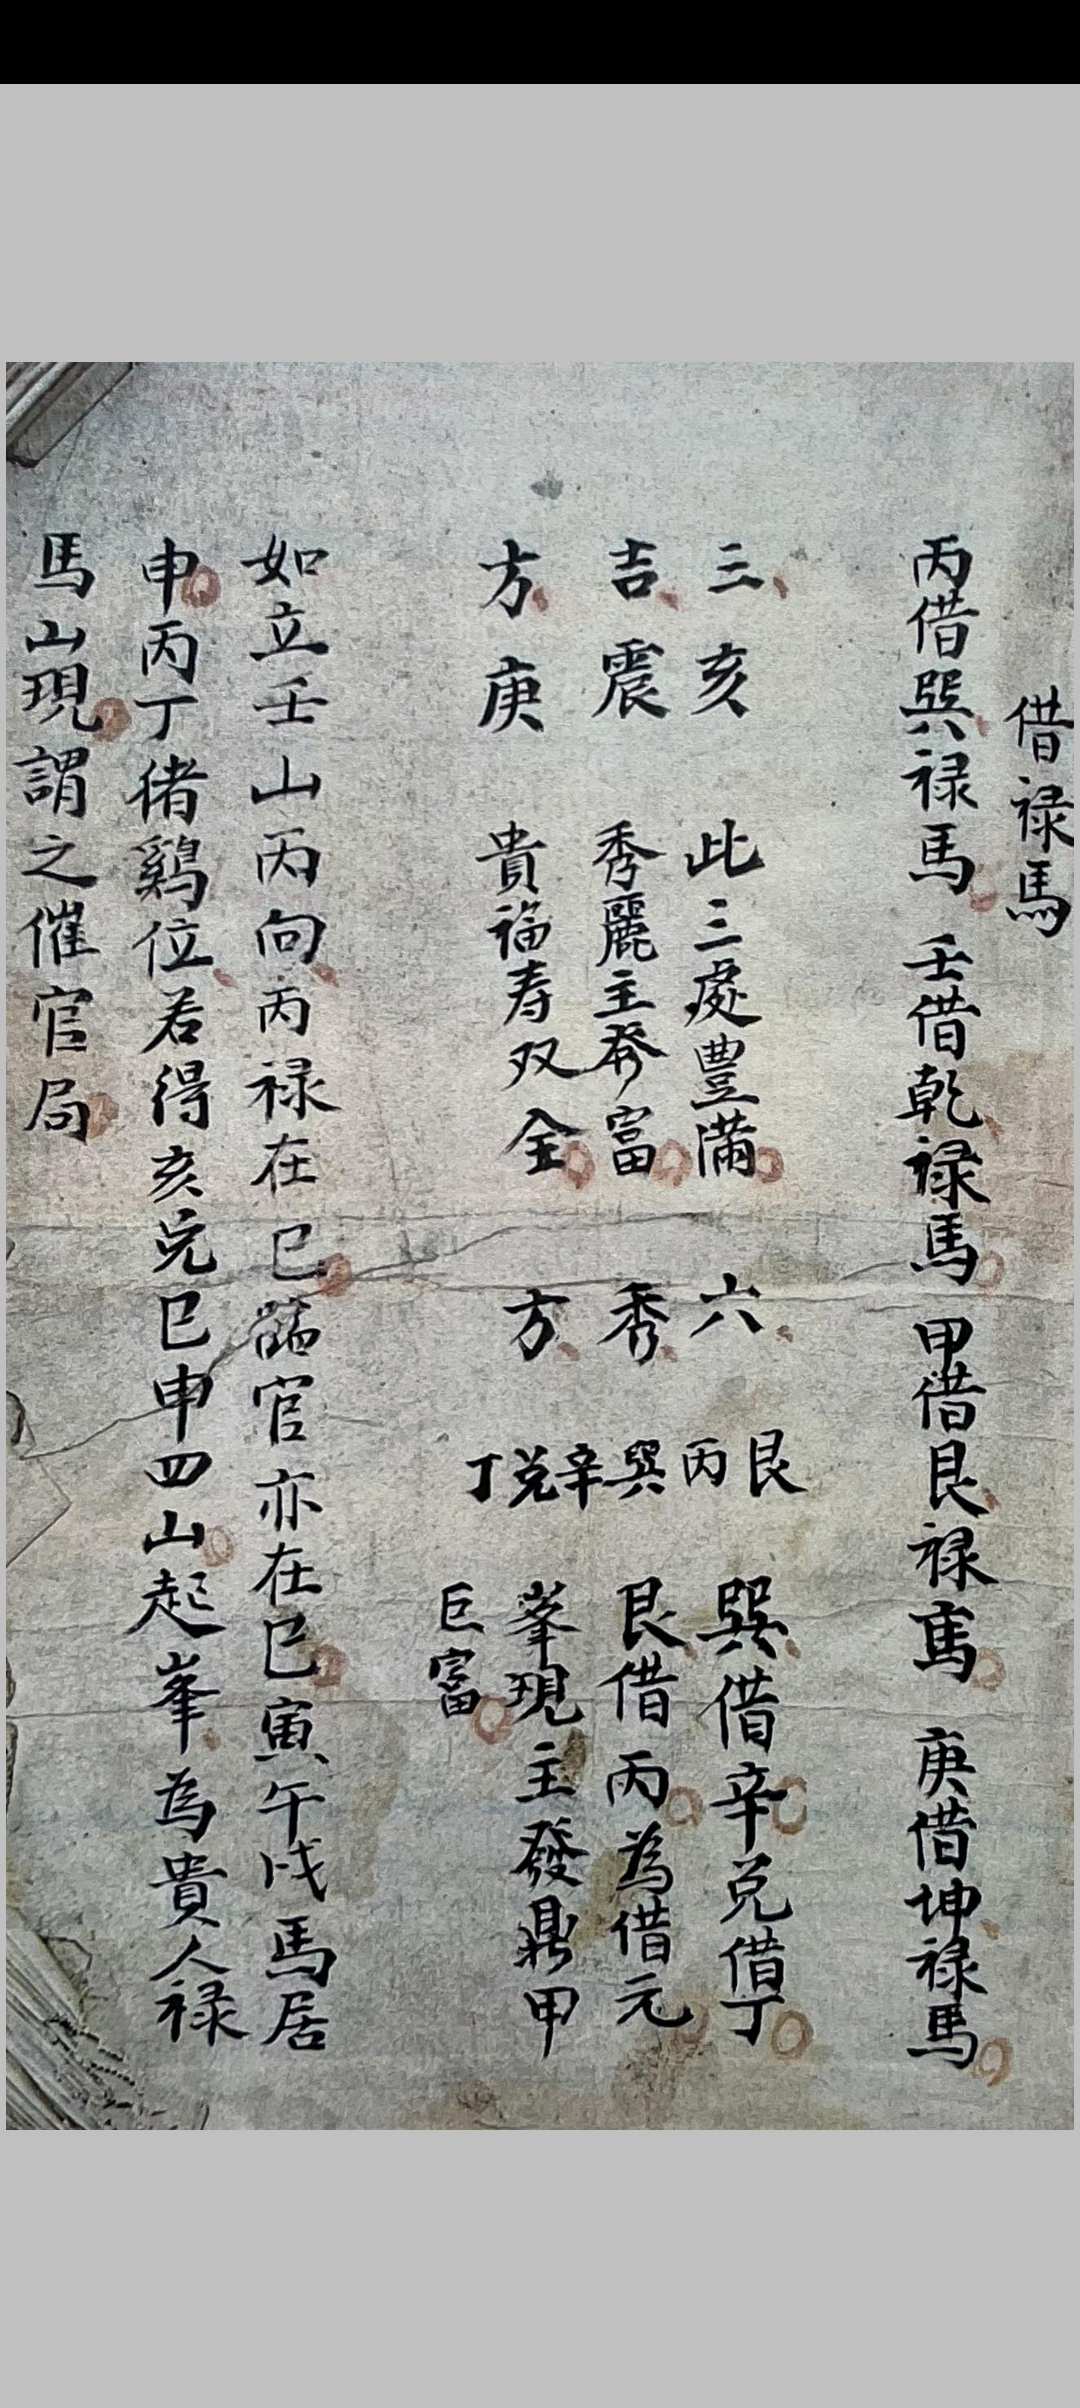 借禄馬
丙借巽禄馬 壬借乾禄馬 甲借艮禄馬 庚借坤禄馬
三吉方 亥震庚
此三處豊滿
秀麗主發富
貴福寿双全
六秀方 艮丙巽辛兌丁
巽借辛兌借丁
艮借丙為借元
峯現主發鼎甲
巨富
如立壬山丙向丙禄在巳 官亦在巳寅午戌馬居
申丙丁猪鷄位若得亥兌巳申四山起峯為貴人禄
馬山現謂之催官局